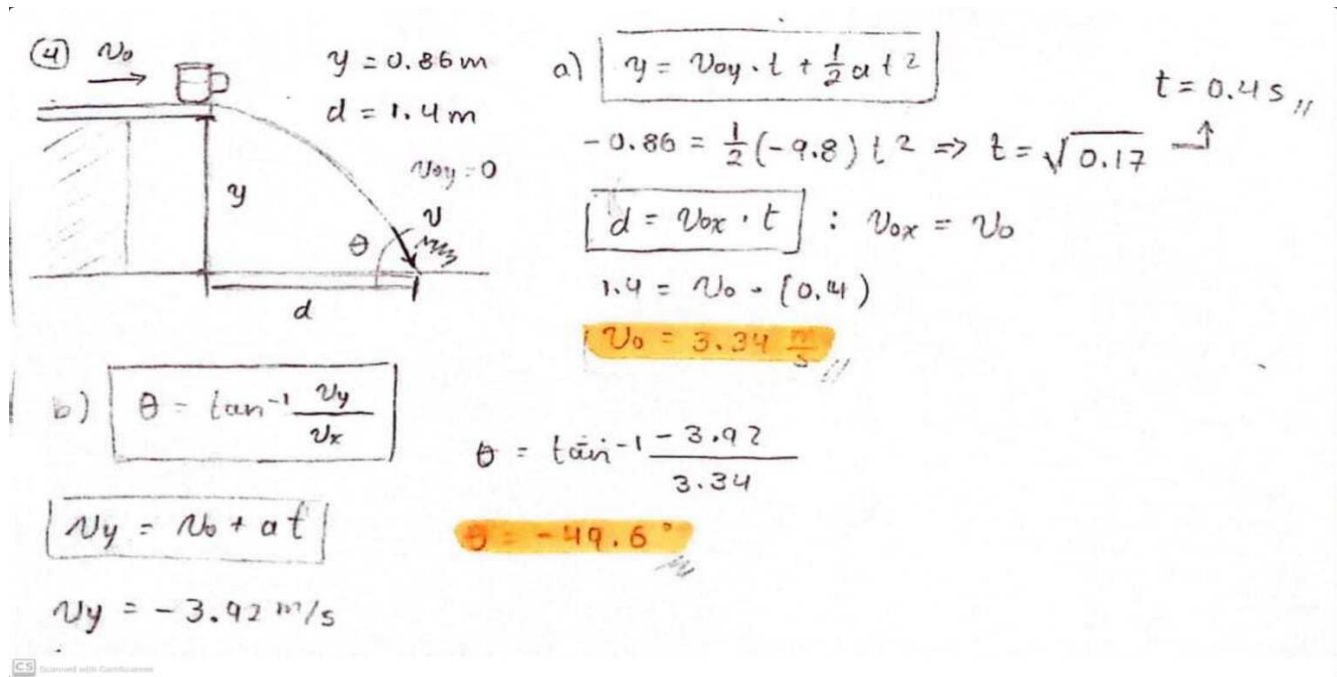 (4) v₀
y = 0.86 m
d = 1.4 m
v₀y = 0
y
θ
v
d
a) y = v₀y · t + 1/2 a t²
-0.86 = 1/2 (-9.8) t² => t = √0.17
t = 0.4 s //
d = v₀x · t : v₀x = v₀
1.4 = v₀ · (0.4)
v₀ = 3.34 m/s //
b) θ = tan⁻¹ vy/vx
θ = tan⁻¹ -3.92/3.34
vy = v₀ + at
θ = -49.6° //
vy = -3.92 m/s
CS Scanned with CamScanner